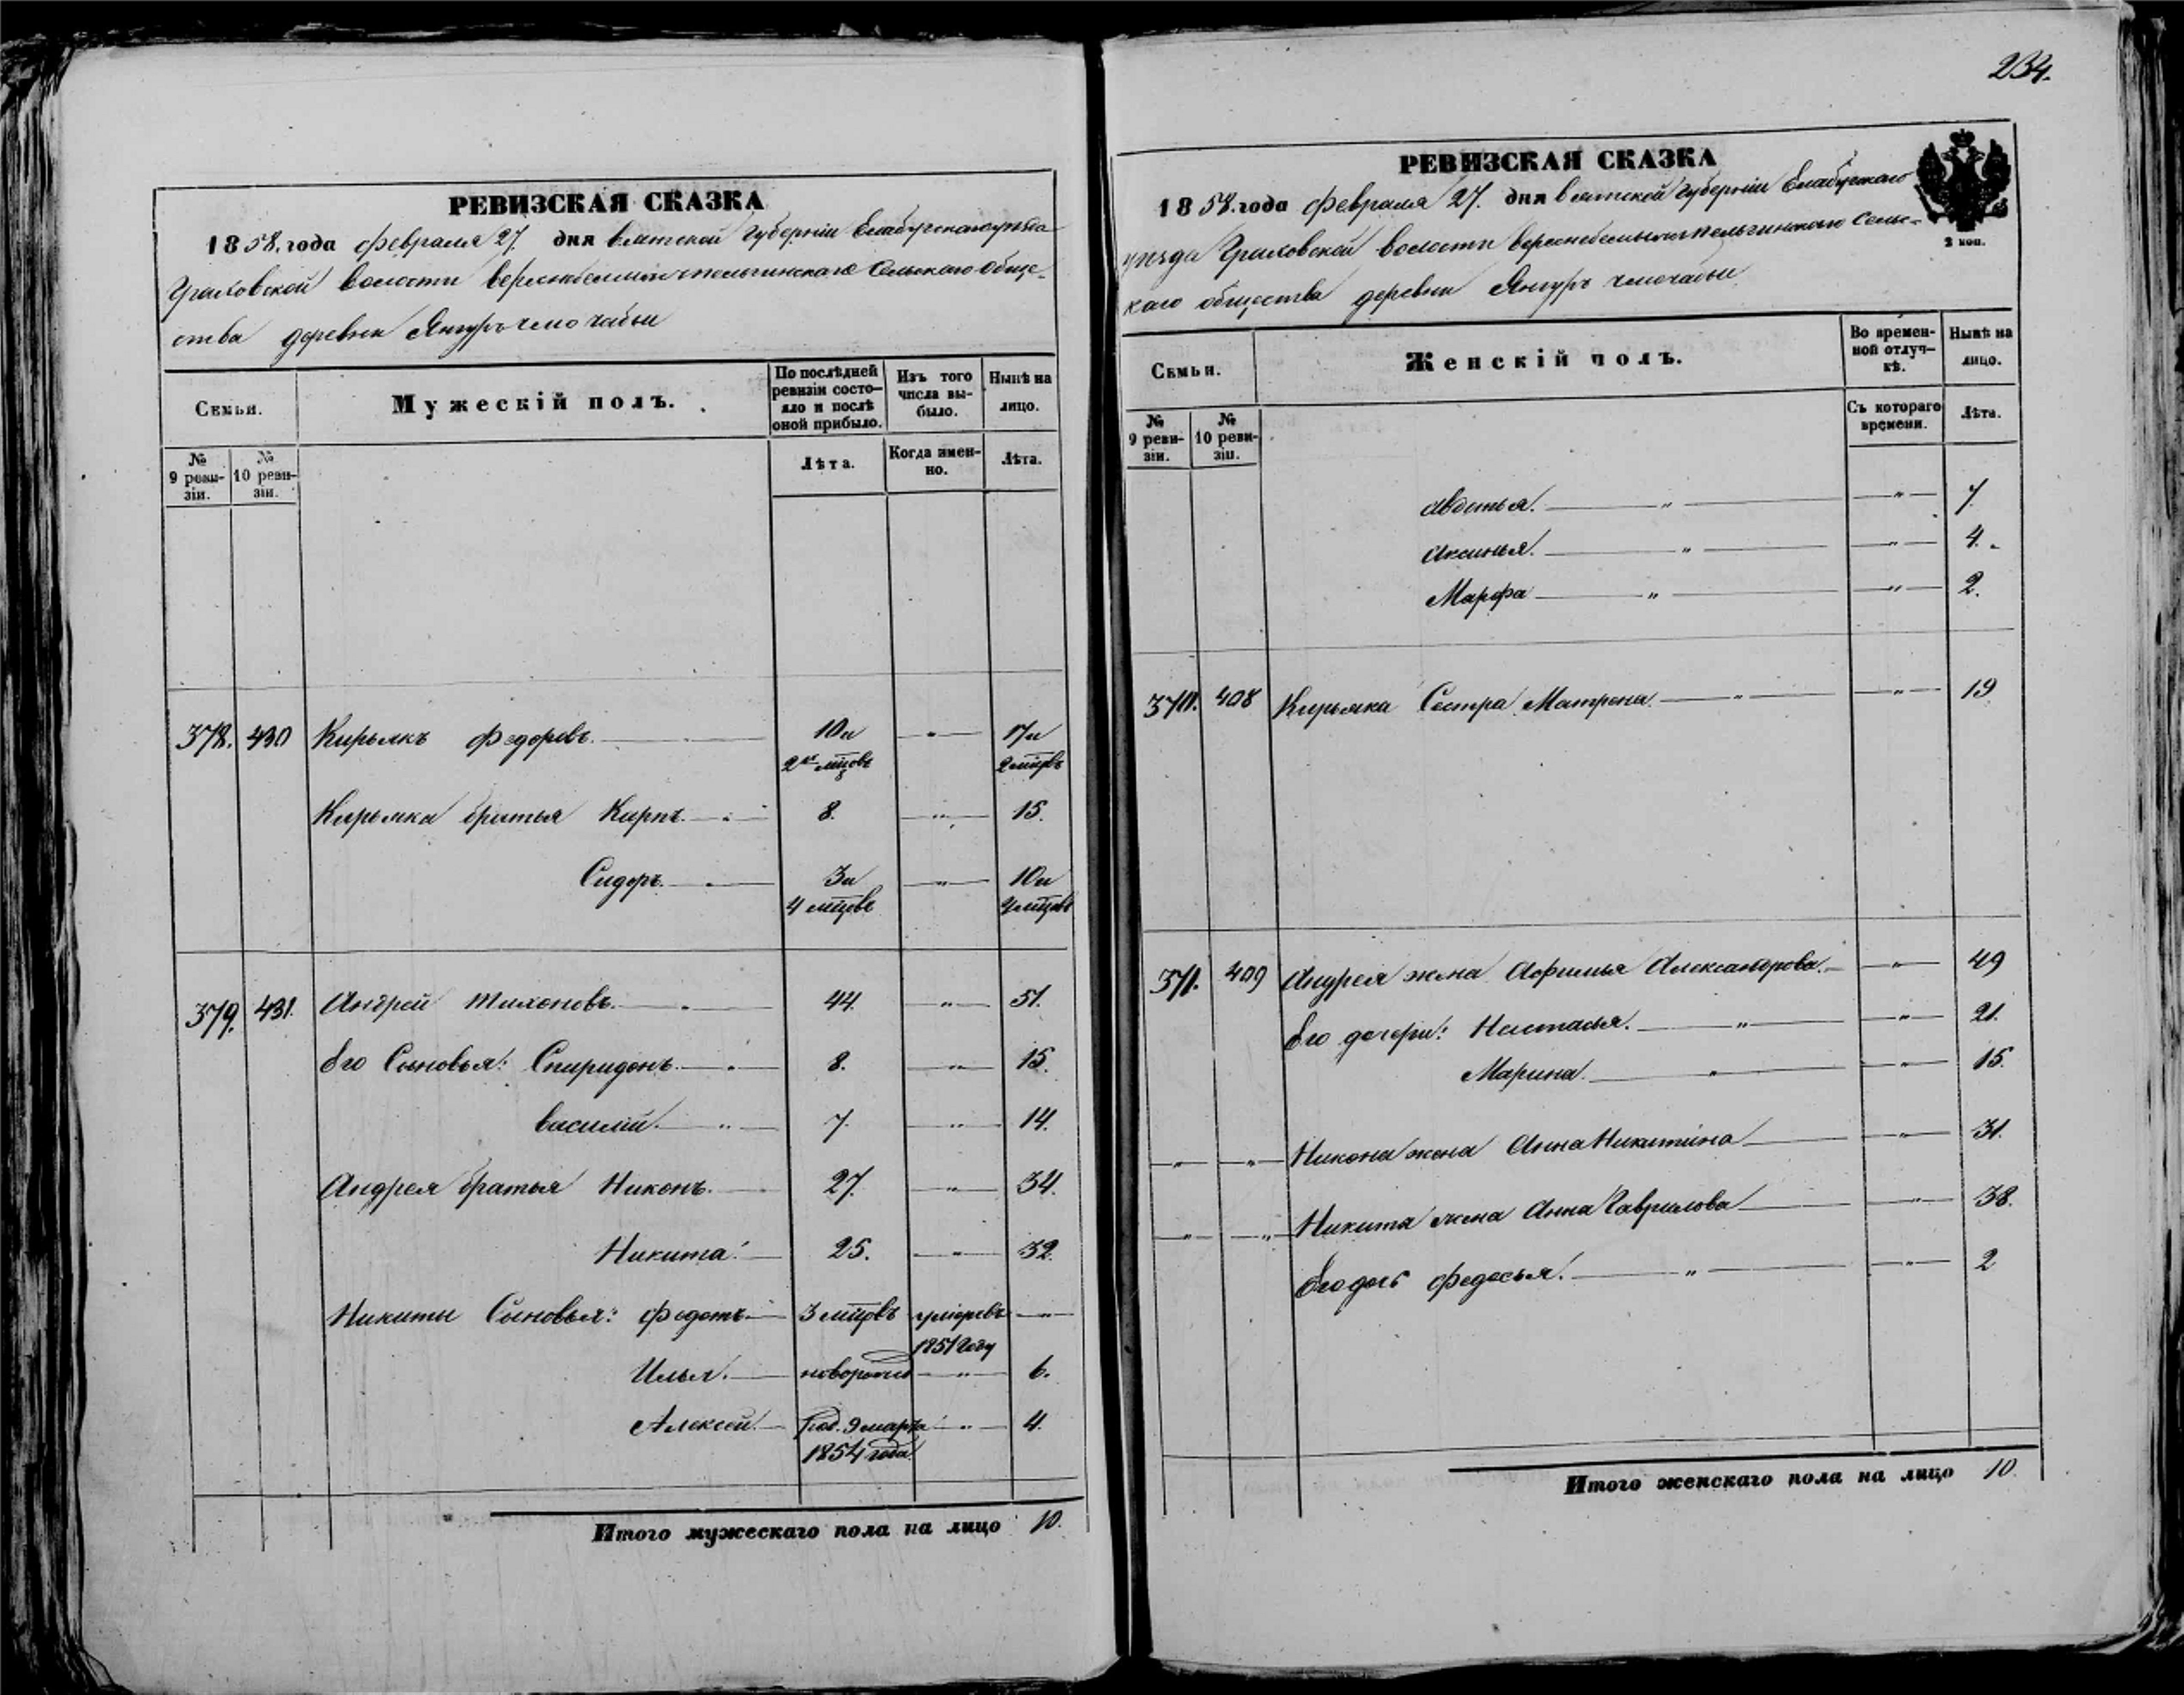 РЕВИЗСКАЯ СКАЗКА
1858. года февраля 27. дня вятской губернiи Елабугскаго уѣзда
Граховской волости
ства деревни Янгуръ чемочабьи
Семьи.
Мужескiй полъ.
По послѣдней ревизiи состояло и послѣ оной прибыло.
Изъ того числа выбыло.
Нынѣ на лицо.
№ 9 ревизiи.
№ 10 ревизiи.
Лѣта.
Когда именно.
Лѣта.
378. 430 Кирьякъ Федоровъ. 10 и 2хъ мцовъ — " — 17 и 2 мцовъ
Кирьяка братья Карпъ. 8. — " — 15.
Сидоръ. 3 и 4 мцовъ — " — 10 и 4 мцовъ
379. 431. Андрей Тихоновъ. 44. — " — 51.
Его Сыновья: Спиридонъ. 8. — " — 15.
василiй. 7. — " — 14.
Андрея братья Никонъ. 27. — " — 34.
Никита. 25. — " — 32.
Никиты Сыновья: Федотъ. 3 мцовъ умеръ въ 1851 году — " —
Илья. новорожд — " — 6.
Алексей. род. 9 марта 1854 года. — " — 4.
Итого мужескаго пола на лицо 10.
234.
РЕВИЗСКАЯ СКАЗКА
1858. года февраля 27. дня вятской губернiи Елабугскаго
2 коп.
уѣзда Граховской волости
каго общества деревни Янгуръ чемочабьи
Семьи.
Женскiй полъ.
Во временной отлучкѣ.
Нынѣ на лицо.
№ 9 ревизiи.
№ 10 ревизiи.
Съ котораго времени.
Лѣта.
Авдотья. — " — — " — 7.
Аксинья. — " — — " — 4.
Марфа — " — — " — 2.
378. 408 Кирьяка Сестра Матрена — " — — " — 19
371. 409 Андрея жена Афимья Александрова. — " — 49
Его дочери: Настасья. — " — — " — 21.
Марина. — " — — " — 15.
— " — — " — Никона жена Анна Никитина — " — 31.
— " — — " — Никита жена Анна Гаврилова — " — 38.
Его дочь Федосья. — " — — " — 2
Итого женскаго пола на лицо 10.